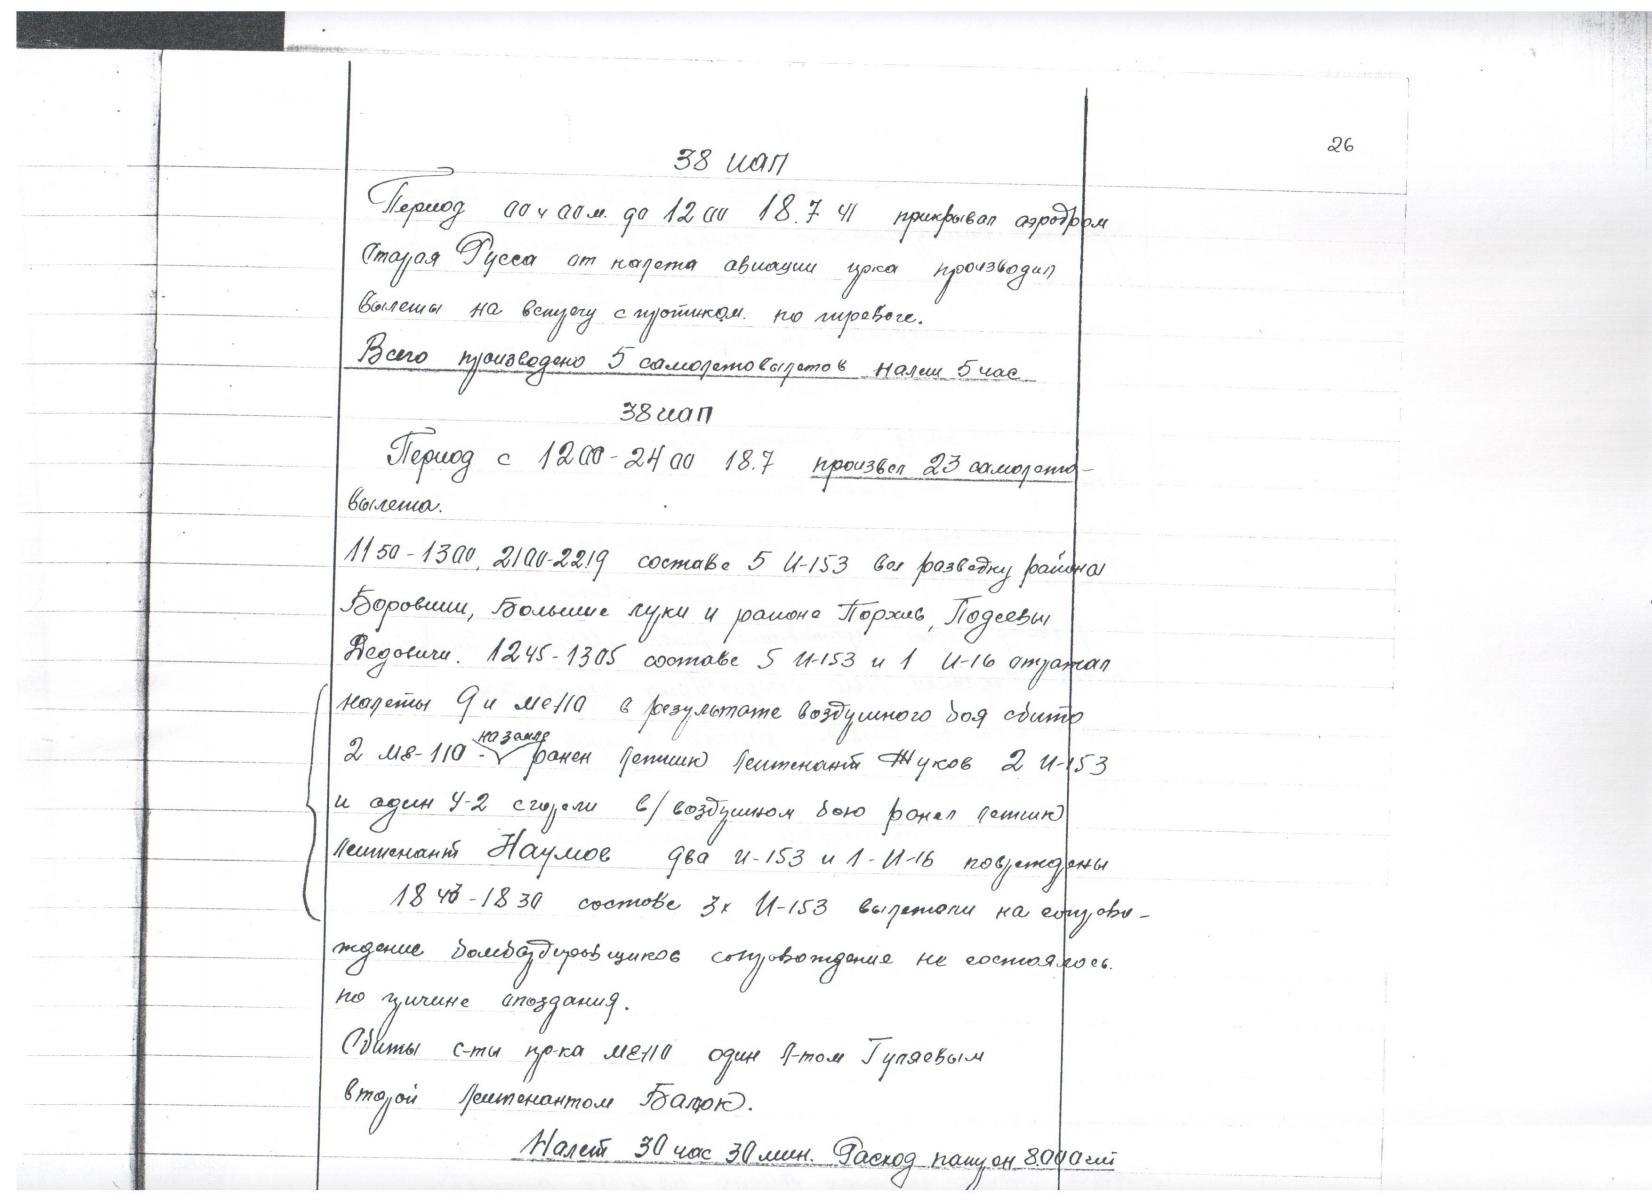 26
38 иап
Период 00 ч 00 м. до 12 00 18.7 41 прикрывал аэродром
Старая Русса от налета авиации пр-ка производил
вылеты на встречу с противком. по тревоге.
Всего произведено 5 самолетовылетов налет 5 час
38 иап
Период с 12 00 - 24 00 18.7 произвел 23 самолето-
вылета.
11 50 - 13 00, 21 00 - 22 19 составе 5 И-153 вел разведку района
Боровичи, Большие луки и районе Порхов, Подсевы
Дедовичи. 12 45 - 13 05 составе 5 И-153 и 1 И-16 отражал
налеты 9 и ме110 в результате воздушного боя сбито
2 ме-110 - на земле ранен летчик лейтенант Жуков 2 И-153
и один У-2 сгорели в/ воздушном бою ранен летчик
лейтенант Наумов два и-153 и 1-И-16 повреждены
18 - 18 30 составе 3х И-153 вылетали на сопрово-
ждение бомбардировщиков сопровождение не состоялось.
по причине опоздания.
Сбиты с-ты пр-ка ме110 один л-том Гуляевым
второй лейтенантом
Налет 30 час 30 мин. Расход патрон 8000 шт